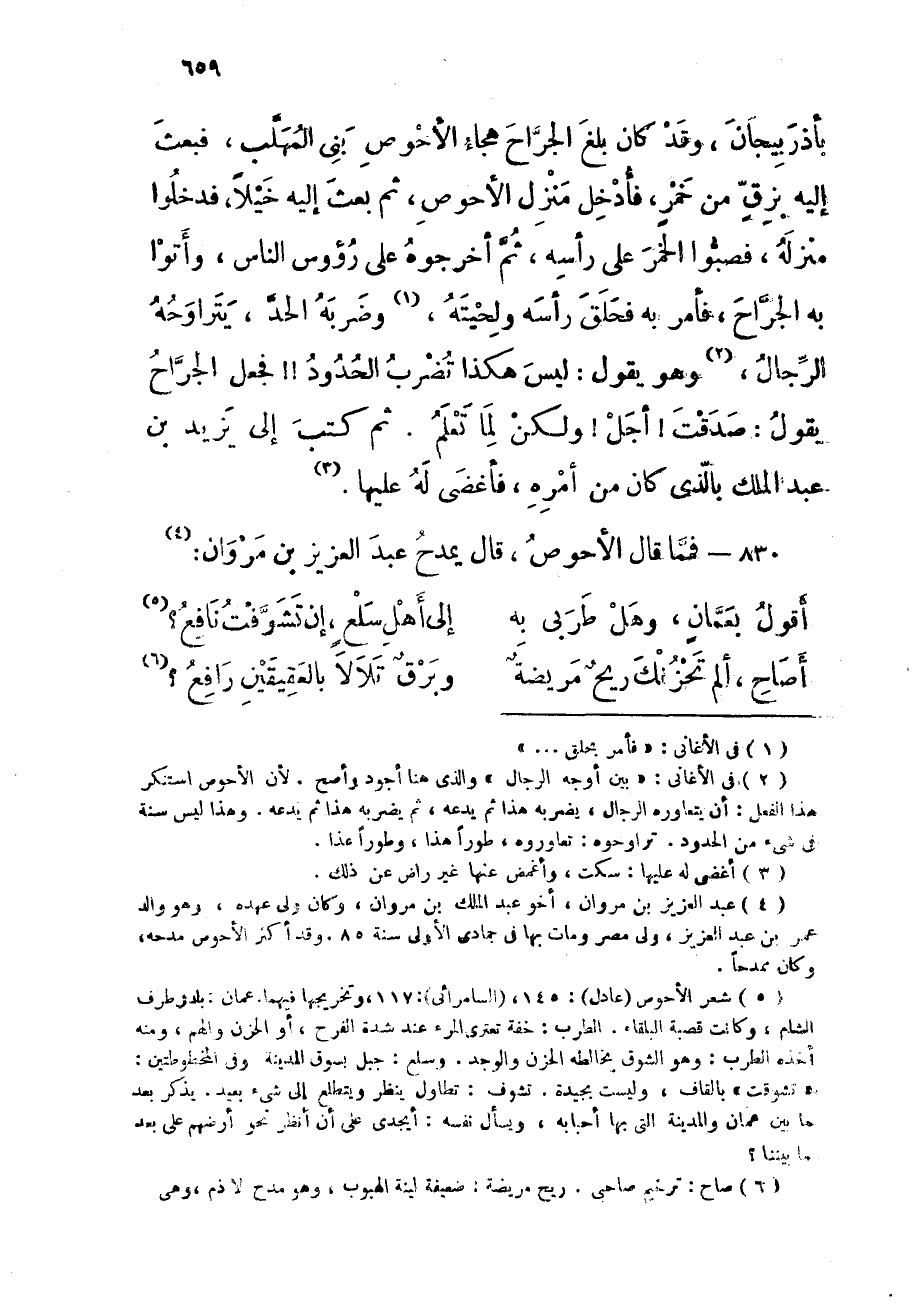 ٦٥٩
بأذرَبِيجانَ ، وقَدْ كان بلغَ الجرَّاحَ هجاء الأحْوصِ بَنِى المُهَلَّب ، فبعثَ
إليه بِزِقٍّ من خَمْرٍ، فأُدْخِل مَنْزِل الأحوصِ، ثم بعثَ إليه خَيْلاً، فدخلُوا
منْزِلَهُ ، فصبُّوا الخمرَ على رأسِه ، ثُمَّ أخرجوهُ على رُؤوس الناس ، وأَتوْا
به الجرَّاحَ ، فأمر به فحَلَقَ رأسَه ولحِيْتَهُ ، (١) وضَربَهُ الحدَّ ، يَتَراوَحُهُ
الرِّجالُ ، (٢) وهو يقول : ليسَ هكذا تُضْربُ الحُدُودُ !! فجعل الجرَّاحُ
يقولُ : صَدَقْتَ ! أجَلْ ! ولكنْ لِمَا تَعْلَمُ . ثم كتبَ إلى يَزِيد بن
عبد الملك بالَّذى كان من أمْرِه ، فأغضَى لَهُ عليها . (٣)
٨٣٠ — فممَّا قال الأحوصُ ، قال يمدحُ عبدَ العزيز بن مَرْوَان : (٤)
أَقولُ بعَمَّانٍ ، وهَلْ طَرَبى بِه إلى أَهْلِ سَلْعٍ ، إن تَشَوَّفْتُ نَافِعُ ؟ (٥)
أَصَاحِ ، ألم تَحْزُنْكَ ريحٌ مَريضةٌ وبَرْقٌ تَلَالَا بالعَقِيقَيْنِ رَافِعُ ؟ (٦)
( ١ ) فى الأغانى : « فأمر بحلق ... »
( ٢ ) فى الأغانى : « بين أوجه الرجال » والذى هنا أجود وأصح . لأن الأحوص استنكر
هذا الفعل : أن يتعاوره الرجال ، يضربه هذا ثم يدعه ، ثم يضربه هذا ثم يدعه . وهذا ليس سنة
فى شىء من الحدود . تراوحوه : تعاوروه ، طوراً هذا ، وطوراً هذا .
( ٣ ) أغضى له عليها : سكت ، وأغمض عنها غير راض عن ذلك .
( ٤ ) عبد العزيز بن مروان ، أخو عبد الملك بن مروان ، وكان ولى عهده ، وهو والد
عمر بن عبد العزيز ، ولى مصر ومات بها فى جمادى الأولى سنة ٨٥ . وقد أكثر الأحوص مدحه،
وكان ممدحاً .
( ٥ ) شعر الأحوص (عادل) : ١٤٥، (السامرائى): ١١٧، وتخريجها فيهما. عمان : بلد فى طرف
الشام ، وكانت قصبة البلقاء . الطرب : خفة تعترى المرء عند شدة الفرح ، أو الحزن والهم ، ومنه
أخذه الطرب : وهو الشوق يخالطه الحزن والوجد . وسلع : جبل بسوق المدينة وفى المخطوطتين :
« تشوقت » بالقاف ، وليست بجيدة . تشوف : تطاول ينظر ويتطلع إلى شىء بعيد . يذكر بعد
ما بين عمان والمدينة التى بها أحبابه ، ويسأل نفسه : أيجدى على أن أنظر نحو أرضهم على بعد
ما بيننا ؟
( ٦ ) صاح : ترخيم صاحبى . ريح مريضة : ضعيفة لينة الهبوب ، وهو مدح لا ذم ،وهى